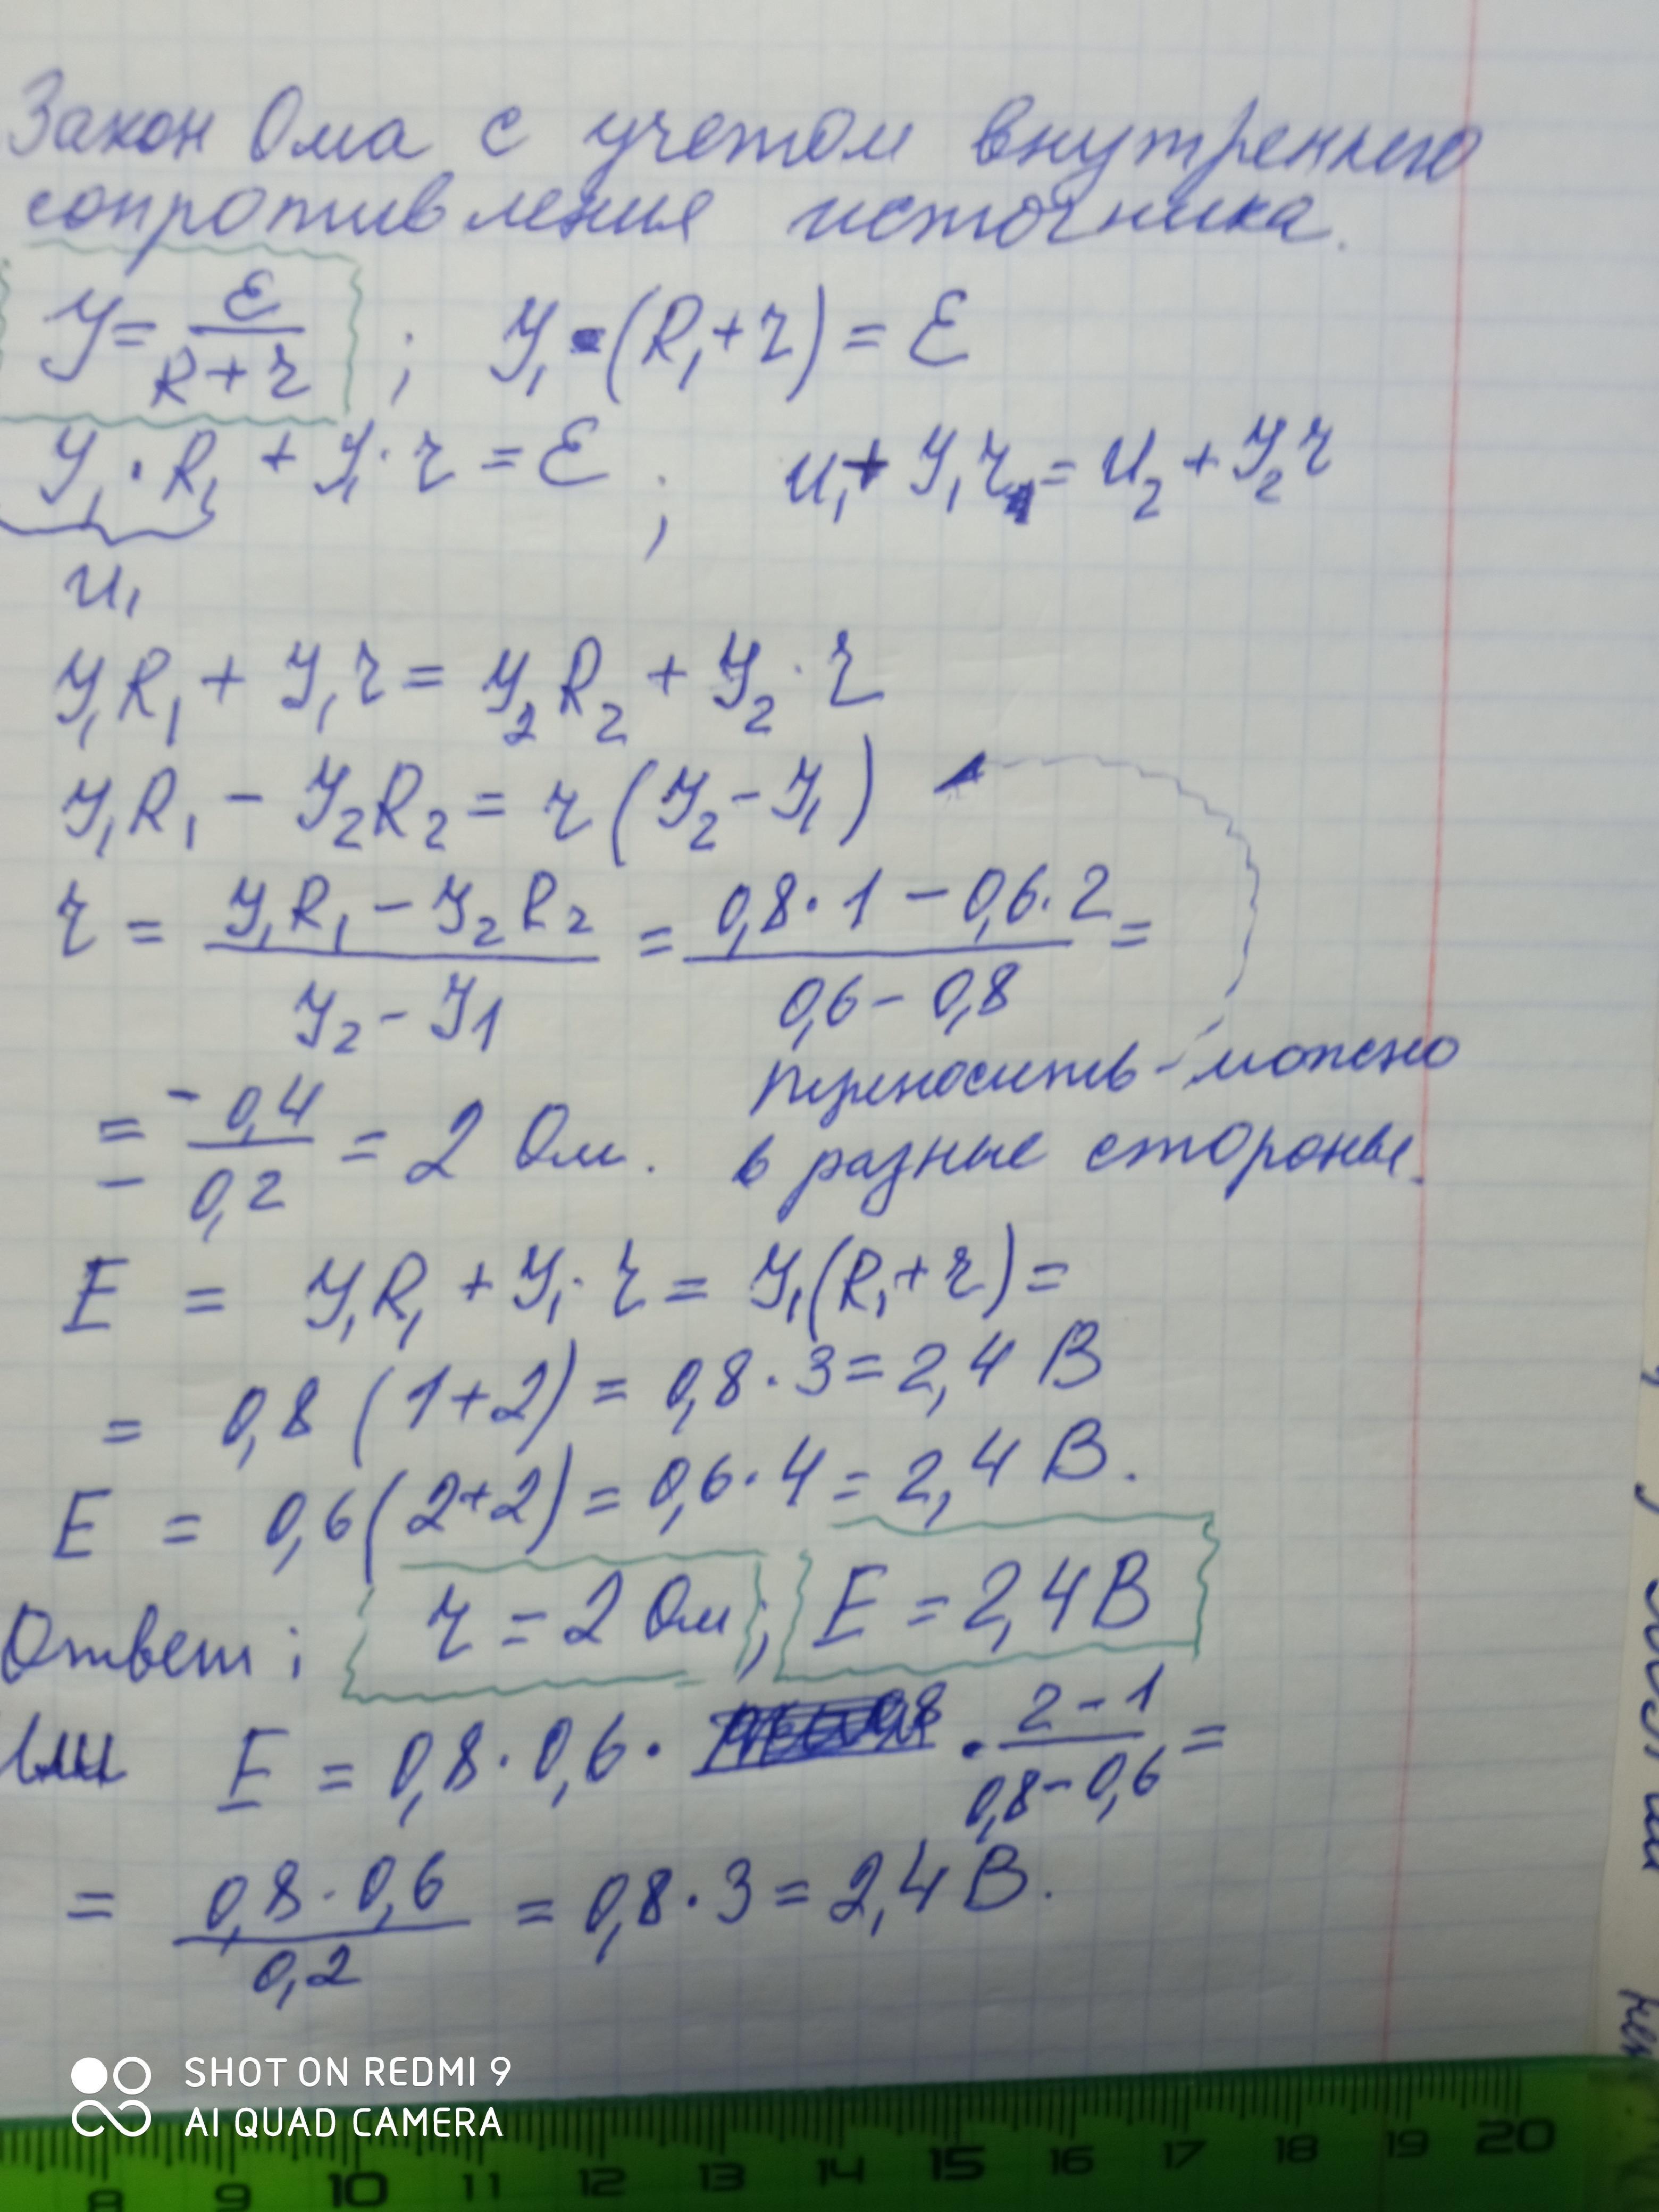 Закон Ома с учетом внутреннего
сопротивления источника.
У = ℰ/(R+r) ; У₁·(R₁+r) = ℰ
У₁·R₁ + У₁·r = ℰ ; U₁ + У₁r = U₂ + У₂r
U₁
У₁R₁ + У₁r = У₂R₂ + У₂·r
У₁R₁ − У₂R₂ = r(У₂−У₁)
r = (У₁R₁ − У₂R₂)/(У₂ − У₁) = (0,8·1 − 0,6·2)/(0,6 − 0,8) =
переносить - можно
= −0,4/−0,2 = 2 Ом. в разные стороны.
E = У₁R₁ + У₁·r = У₁(R₁+r) =
= 0,8(1+2) = 0,8·3 = 2,4 В
E = 0,6(2+2) = 0,6·4 = 2,4 В.
Ответ: r = 2 Ом; E = 2,4 В
Или E = 0,8·0,6· ·(2−1)/(0,8−0,6) =
= (0,8·0,6)/0,2 = 0,8·3 = 2,4 В.
SHOT ON REDMI 9
AI QUAD CAMERA
8 9 10 11 12 13 14 15 16 17 18 19 20